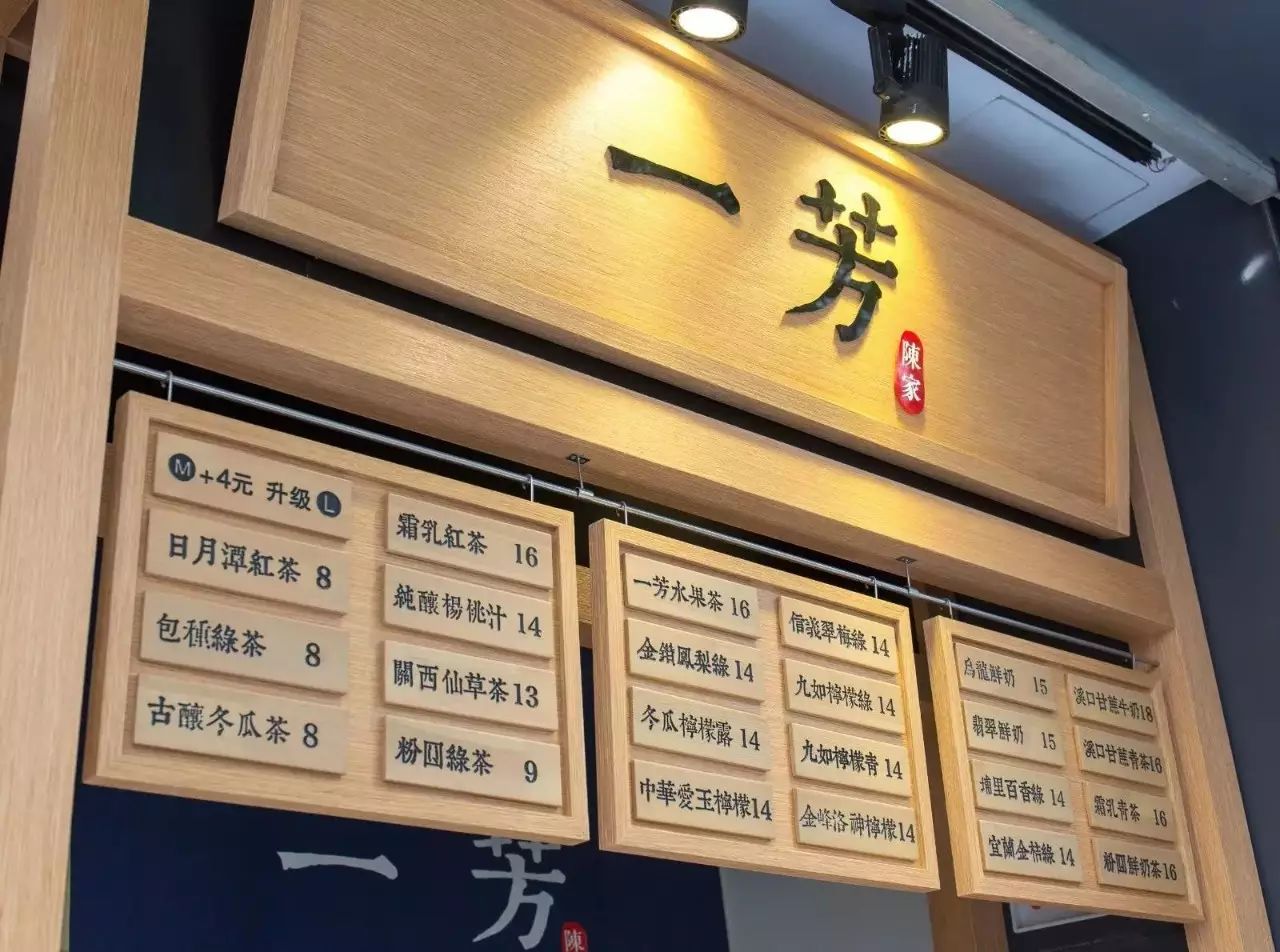 一芳
陳家
M+4元 升级L
日月潭紅茶 8
包種綠茶 8
古釀冬瓜茶 8
霜乳紅茶 16
純釀楊桃汁 14
關西仙草茶 13
粉圓綠茶 9
一芳水果茶 16
金鑽鳳梨綠 14
冬瓜檸檬露 14
中華愛玉檸檬 14
信義翠梅綠 14
九如檸檬綠 14
九如檸檬青 14
金峰洛神檸檬 14
烏龍鮮奶 15
翡翠鮮奶 15
埔里百香綠 14
宜蘭金桔綠 14
溪口甘蔗牛奶 18
溪口甘蔗青茶 16
霜乳青茶 16
粉圓鮮奶茶 16
一芳
陳